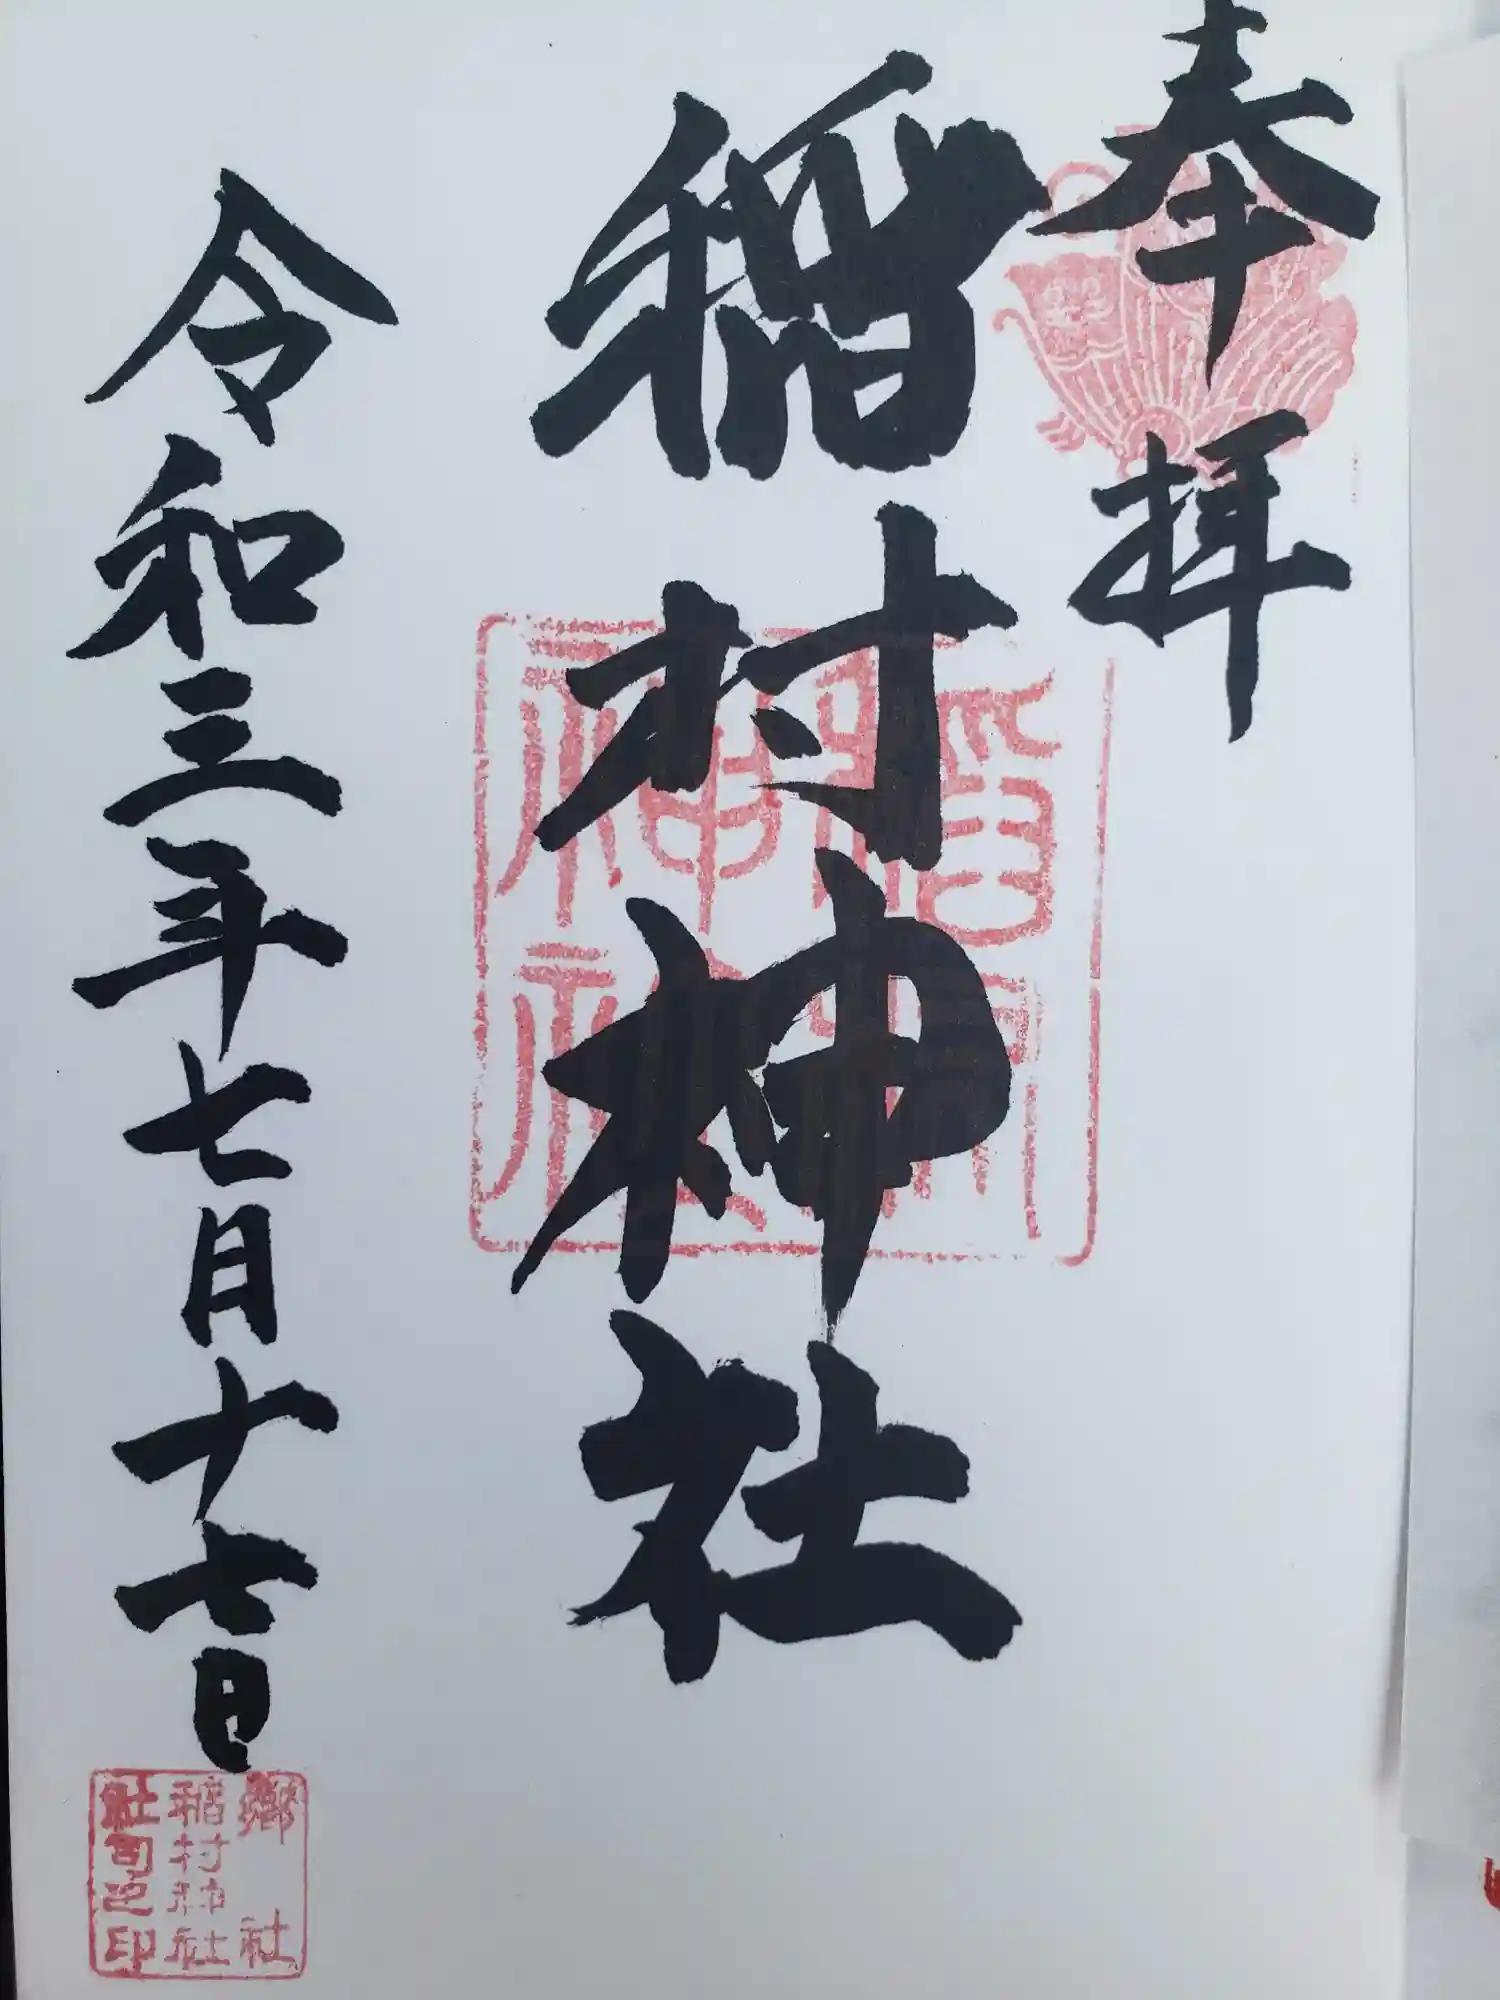 奉拝
稲村神社
稲村神社
令和三年七月十七日
郷社
稲村神社
社司之印